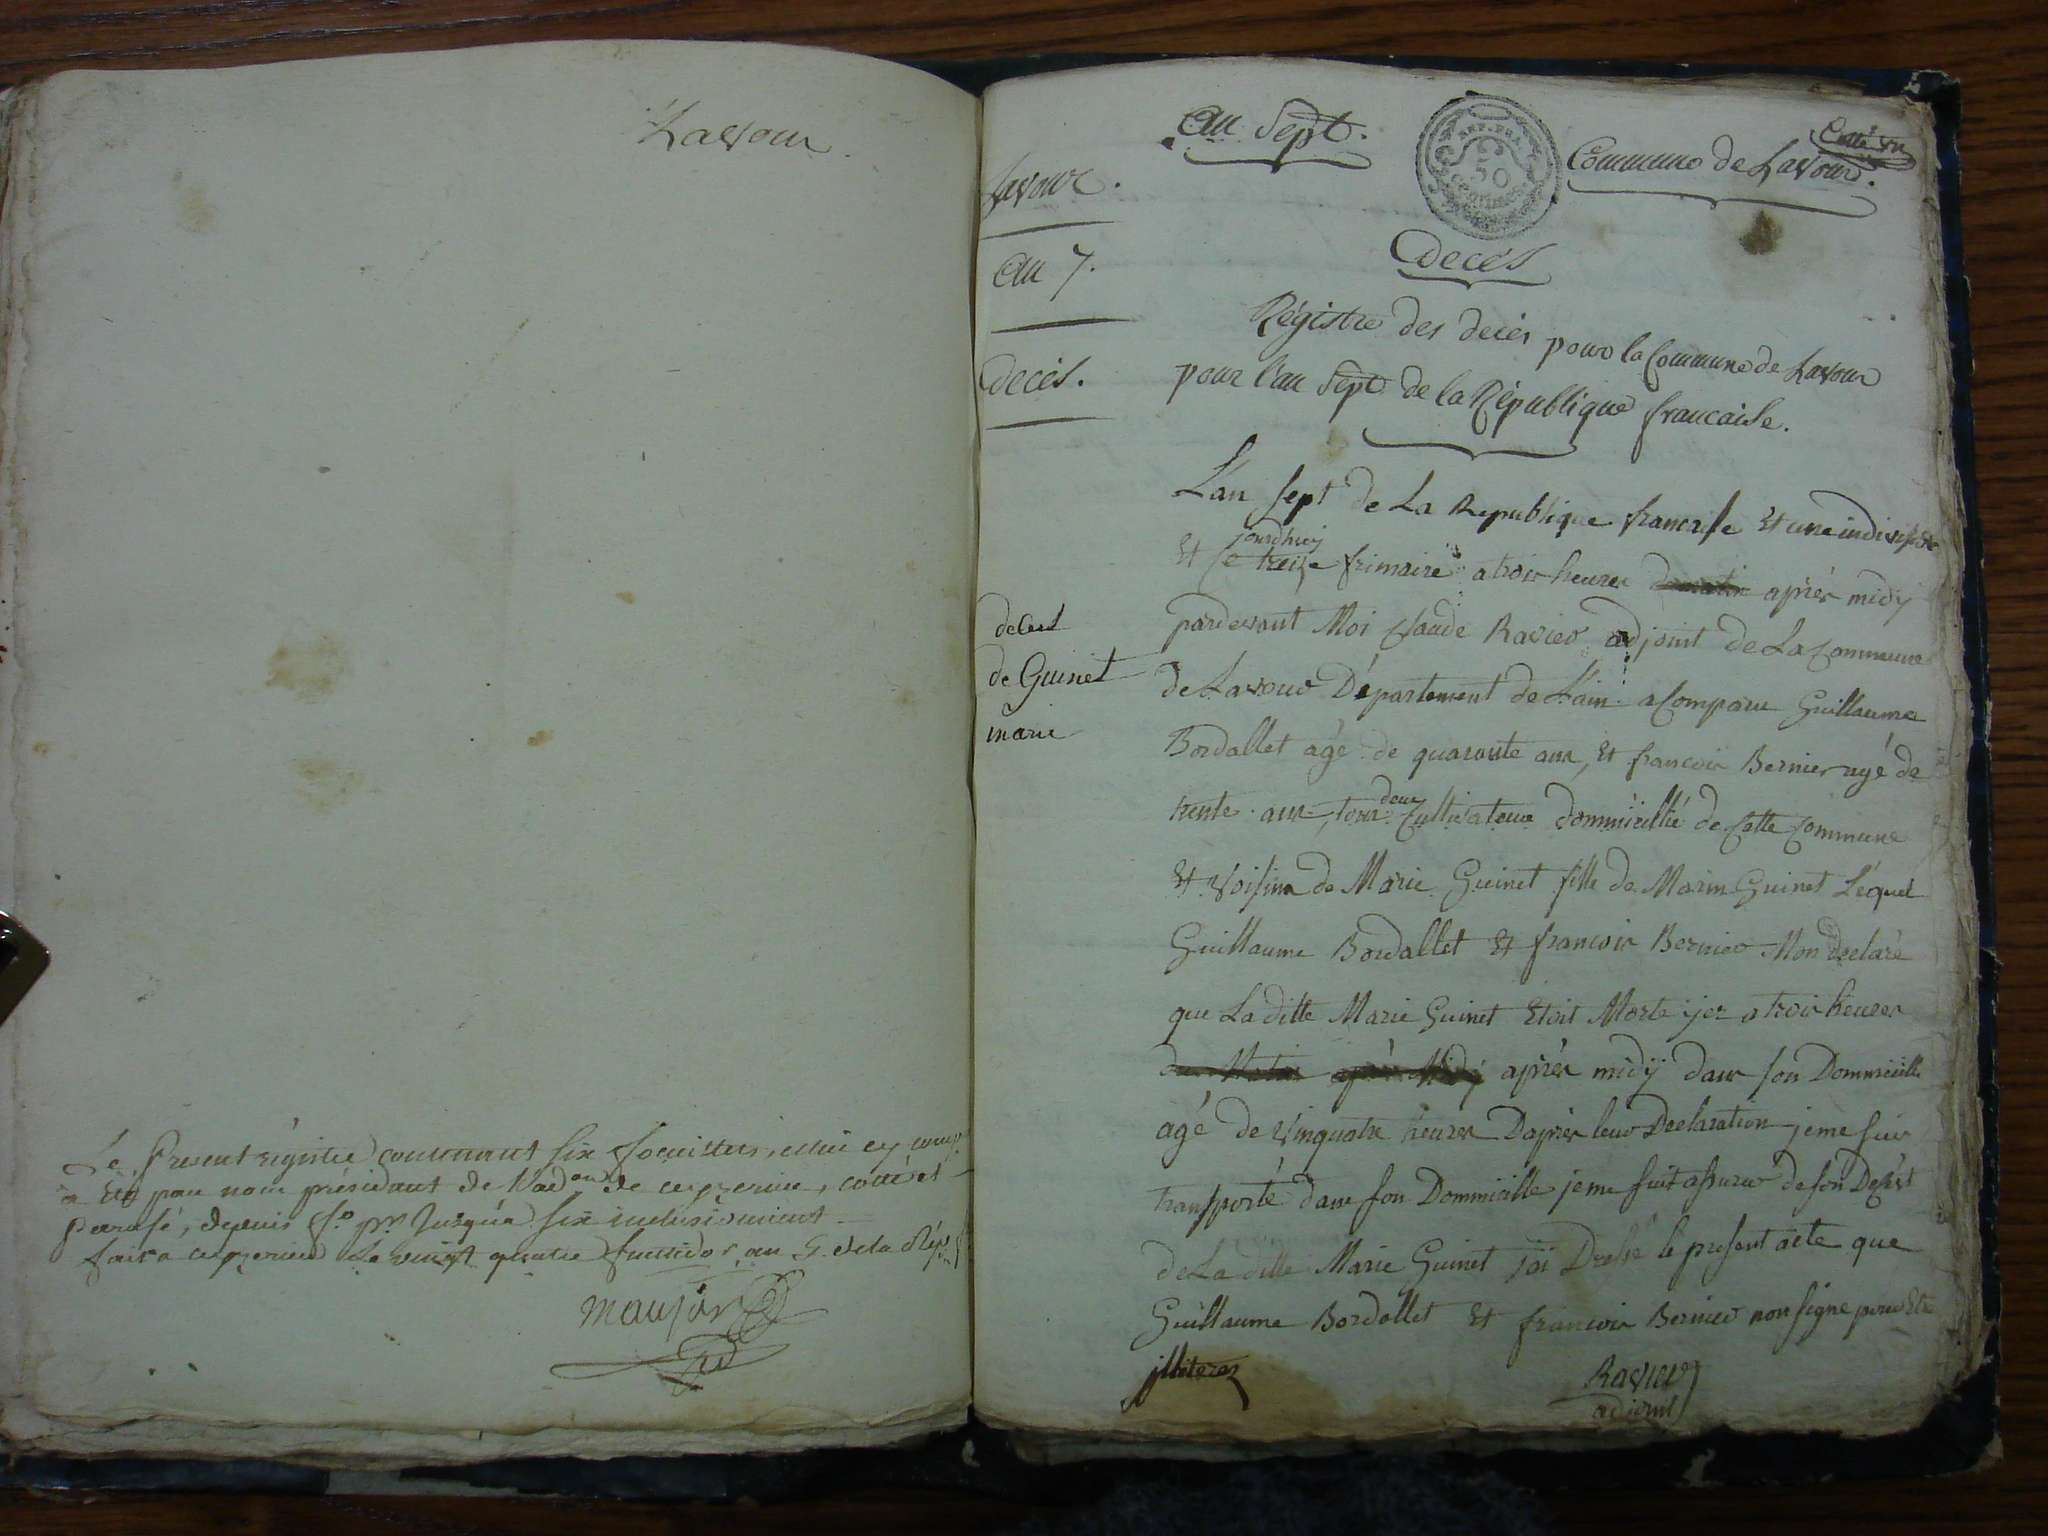 Lavour.
Le present régistre contenant six feuillets, celui cy comp.
a été par nous président de l'ad.on de ceyzerieu, cotté et
parafé, depuis f.o p.r Jusqu'a six inclusivement
fait a ceyzerieu Le vingt quatre fructidor, an 6. de la Rép.
Lavour.
an 7.
Décès.
deces
de Guinet
marie
an Sept.
REP. FRA.
50
centimes
Commune de Lavour.
Décès
Régistre des decès pour la Commune de Lavour
pour l'an Sept de la République francaise.
L'an sept de La Republique francaise Et une indivisible
jourdhuy
Et Ce treize frimaire a trois heures du matin après midy
pardevant Moi Claude Ravier adjoint de La Commune
de Lavour Département de L'ain a Comparu Guillaume
Bordallet agé de quarante ans, Et francois Bernier agé de
deux
trente ans, tous Cultivateur dommicillié de Cette Commune
Et Voisins de Marie Guinet fille de Marin Guinet Léquel
Guillaume Bordallet Et francois Bernier Mon declaré
que La ditte Marie Guinet Etoit Morte ijer a trois heures
du Matin après Midy après midij dans son Dommicille
agé de Vinquatre heures Daprès leur Declaration je me suis
transporté dans son Dommicille je me suit assurer de son Decest
de La ditte Marie Guinet jai Dressé le present acte que
Guillaume Bordallet Et francois Bernier non signe pour Etre
jlliteres
Ravier
adjoint